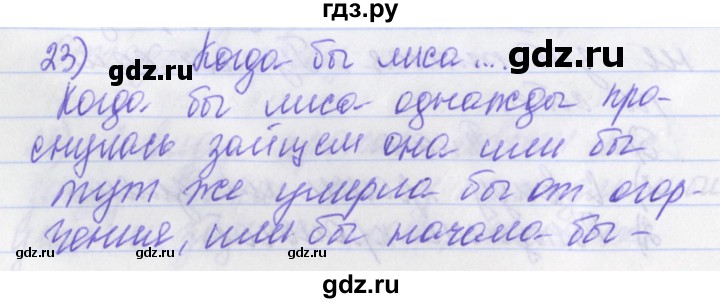 гдз.ру
23) Когда бы лиса...
gdz.ru gdz.ru
Когда бы лиса однажды про-
снулась зайцем она или бы
тут же умерла бы от огор-
gdz.ru gdz.ru
чения, или бы начала бы-
gdz.ru